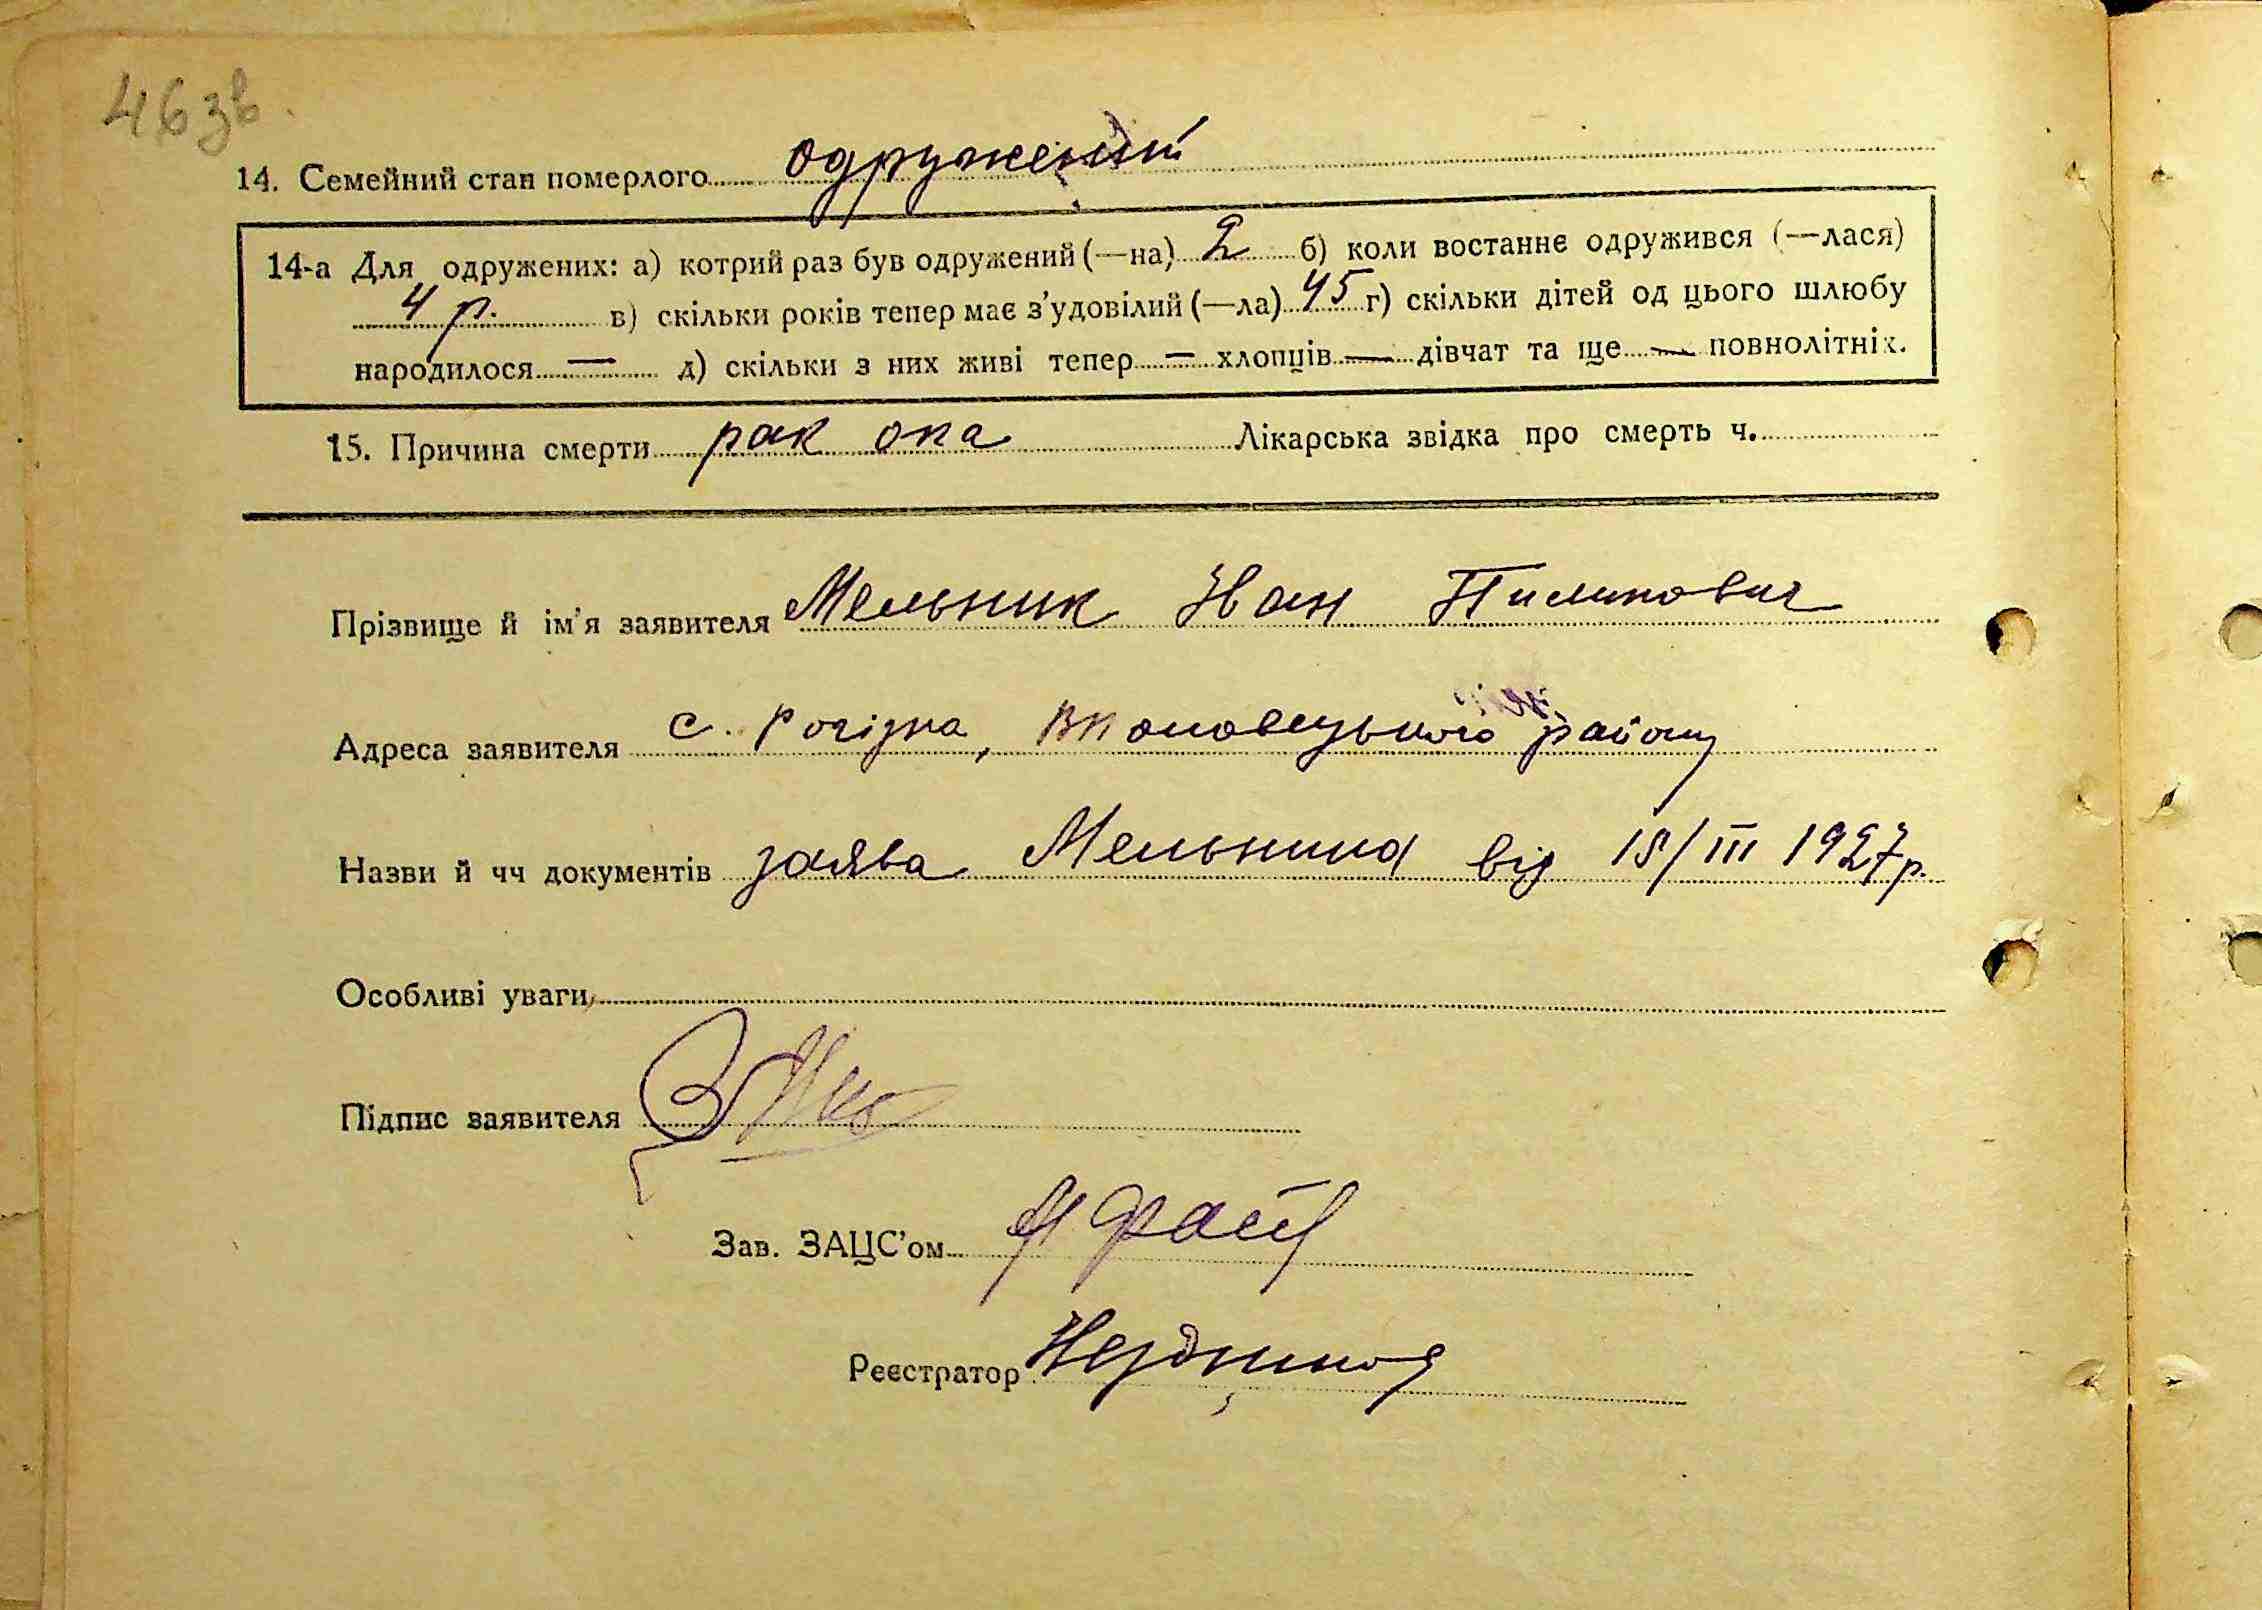 46 зв.
14. Семейний стан померлого одружений
14-а Для одружених: а) котрий раз був одружений (—на) 2 б) коли востаннє одружився (—лася)
4 р. в) скільки років тепер має з'удовілий (—ла) 45 г) скільки дітей од цього шлюбу
народилося — д) скільки з них живі тепер — хлопців — дівчат та ще — повнолітніх.
15. Причина смерти рак ока Лікарська звідка про смерть ч.
Прізвище й ім'я заявителя Мельник Іван Пилипович
Адреса заявителя с. району
Назви й чч документів заява Мельника від 18/III 1927 р.
Особливі уваги
Підпис заявителя
Зав. ЗАЦС'ом
Реєстратор